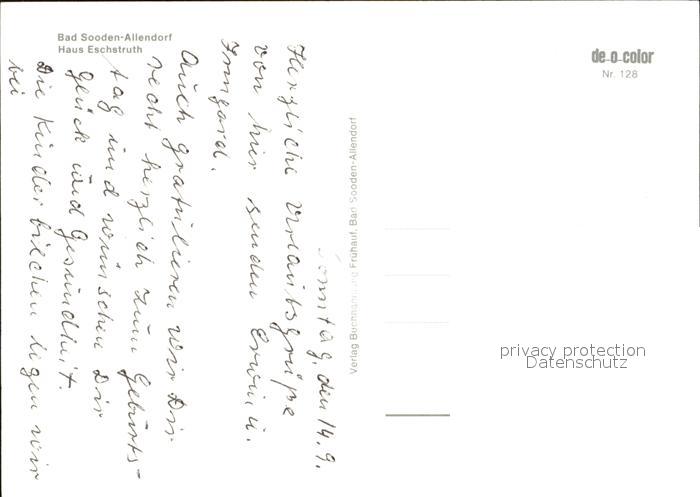 Bad Sooden-Allendorf
Haus Eschstruth
de-o-color
Nr. 128
Verlag Buchhandlung Frühauf, Bad Sooden-Allendorf
Sonntag, den 14. 9.
Herzliche Urlaubsgrüße
von hier senden Erwin u.
Irmgard.
Auch gratulieren wir Dir
recht herzlich zum Geburts-
tag und wünschen Dir
Glück und Gesundheit.
Die Kinderbildchen legen wir
bei
privacy protection
Datenschutz